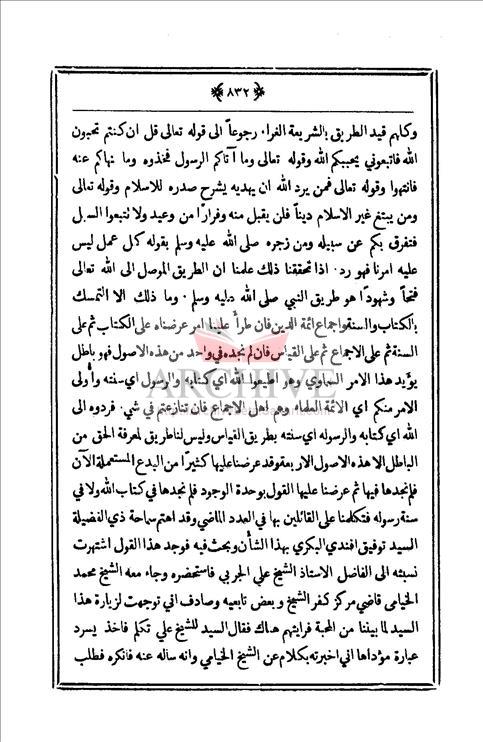 ﴿ ٨٣٢ ﴾
وكلهم قيد الطريق بالشريعة الغراء رجوعاً الى قوله تعالى قل ان كنتم تحبون
الله فاتبعوني يحببكم الله وقوله تعالى وما آتاكم الرسول فخذوه وما نهاكم عنه
فانتهوا وقوله تعالى فمن يرد الله ان يهديه يشرح صدره للاسلام وقوله تعالى
ومن يبتغ غير الاسلام ديناً فلن يقبل منه وفراراً من وعيد ولا تتبعوا السبل
فتفرق بكم عن سبيله ومن زجره صلى الله عليه وسلم بقوله كل عمل ليس
عليه امرنا فهو رد. اذا تحققنا ذلك علمنا ان الطريق الموصل الى الله تعالى
فتحاً وشهوداً هو طريق النبي صلى الله عليه وسلم. وما ذلك الا التمسك
بالكتاب والسنة واجماع ائمة الدين فان طرأ علينا امر عرضناه على الكتاب ثم على
السنة ثم على الاجماع ثم على القياس فان لم نجده في واحد من هذه الاصول فهو باطل
يؤيد هذا الامر السماوي وهو اطيعوا الله اي كتابه والرسول اي سنته وأولى
الامر منكم اي الائمة العلماء وهم اهل الاجماع فان تنازعتم في شيء فردوه الى
الله اي كتابه والرسوله اي سنته بطريق القياس وليس لنا طريق لمعرفة الحق من
الباطل الا هذه الاصول الاربعة وقد عرضنا عليها كثيراً من البدع المستعملة الآن
فلم نجدها فيها ثم عرضنا عليها القول بوحدة الوجود فلم نجدها في كتاب الله ولا في
سنة رسوله فتكلمنا على القائلين بها في العدد الماضي وقد اهتم سماحة ذي الفضيلة
السيد توفيق افندي البكري بهذا الشأن وبحث فيه فوجد هذا القول اشتهرت
نسبته الى الفاضل الاستاذ الشيخ علي الجربي فاستحضره وجاء معه الشيخ محمد
الخيامي قاضي مركز كفر الشيخ وبعض تابعيه وصادف اني توجهت لزيارة هذا
السيد لما بيننا من المحبة فرايتهم هناك فقال السيد للشيخ علي تكلم فاخذ يسرد
عبارة مؤداها اني اخبرته بكلام عن الشيخ الخيامي وانه ساله عنه فانكره فطلب
ARCHIVE